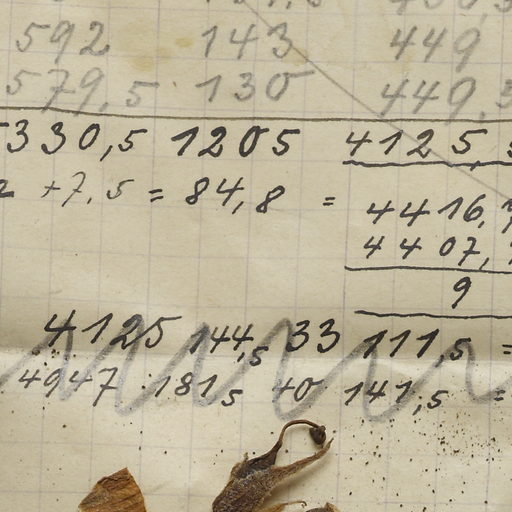 592 143 449
579,5 130 449,5
330,5 1205 4125,5
+7,5 = 84,8 = 4416,
4407,
9
4125 144,5 33 111,5 =
4947 181,5 40 141,5 =